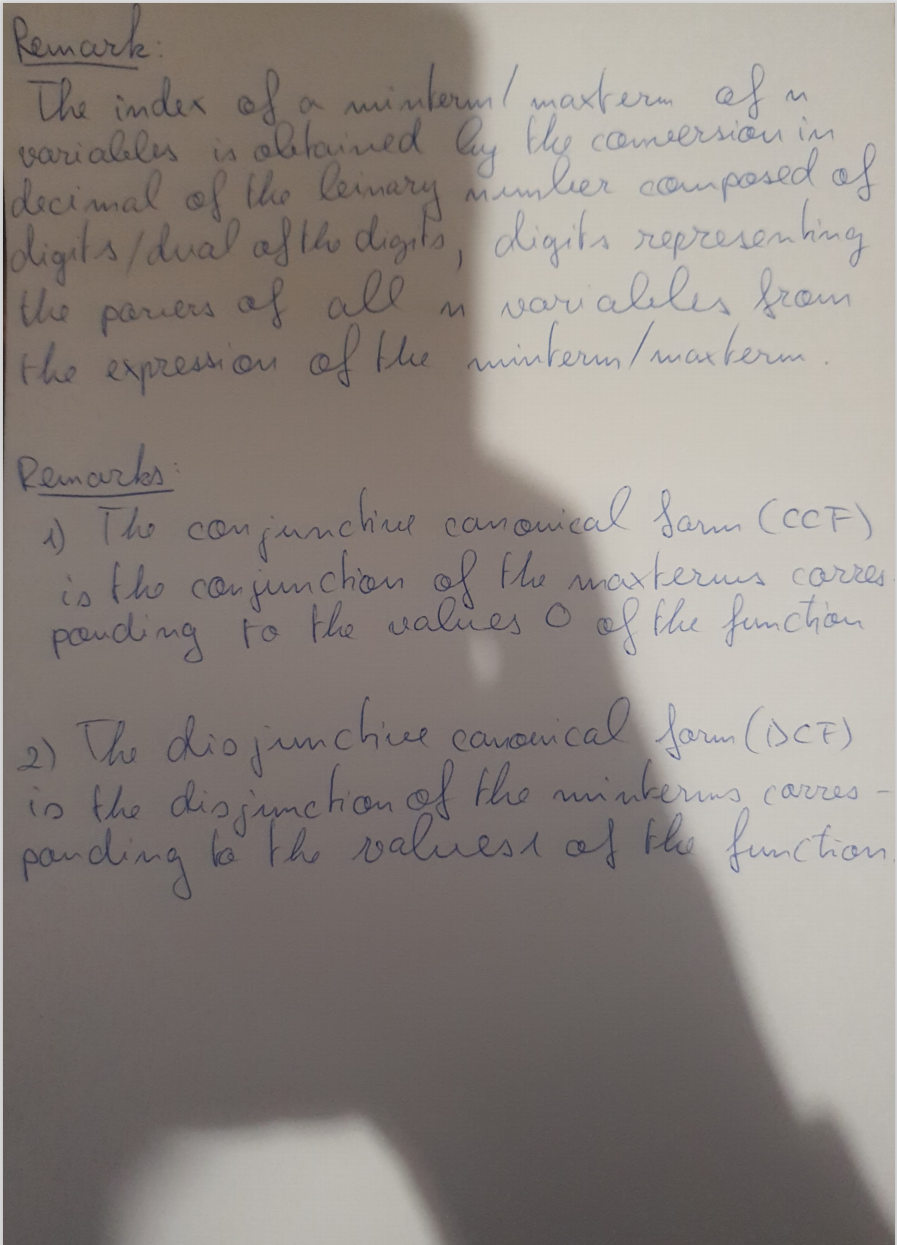 Remark:
The index of a minterm/ maxterm of n
variables is obtained by the conversion in
decimal of the binary number composed of
digits/dual of the digits, digits representing
the powers of all n variables from
the expression of the minterm/maxterm.
Remarks:
1) The conjunctive canonical form (CCF)
is the conjunction of the maxterms corres-
ponding to the values 0 of the function
2) The disjunctive canonical form (DCF)
is the disjunction of the minterms corres-
ponding to the values 1 of the function.